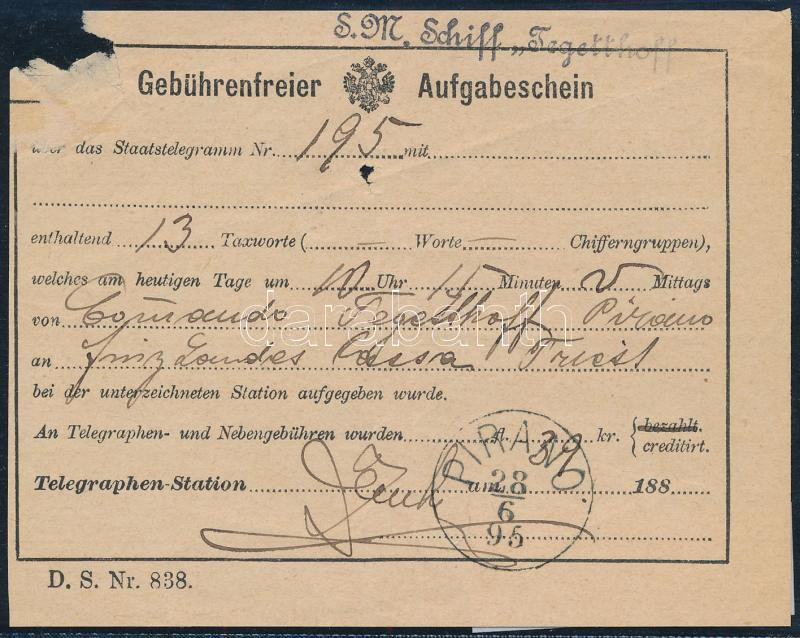 S. M. Schiff „Tegetthoff
Gebührenfreier Aufgabeschein
über das Staatstelegramm Nr. 195 mit
enthaltend 13 Taxworte ( — Worte — Chifferngruppen),
welches am heutigen Tage um 10 Uhr 15 Minuten V Mittags
von Comando Tegetthoff Pirano
an Finz Landes Cassa Triest
darabanth
bei der unterzeichneten Station aufgegeben wurde.
An Telegraphen- und Nebengebühren wurden fl. 39 kr. { bezahlt. creditirt.
Telegraphen-Station am 188
PIRANO.
28
6
95
D. S. Nr. 838.